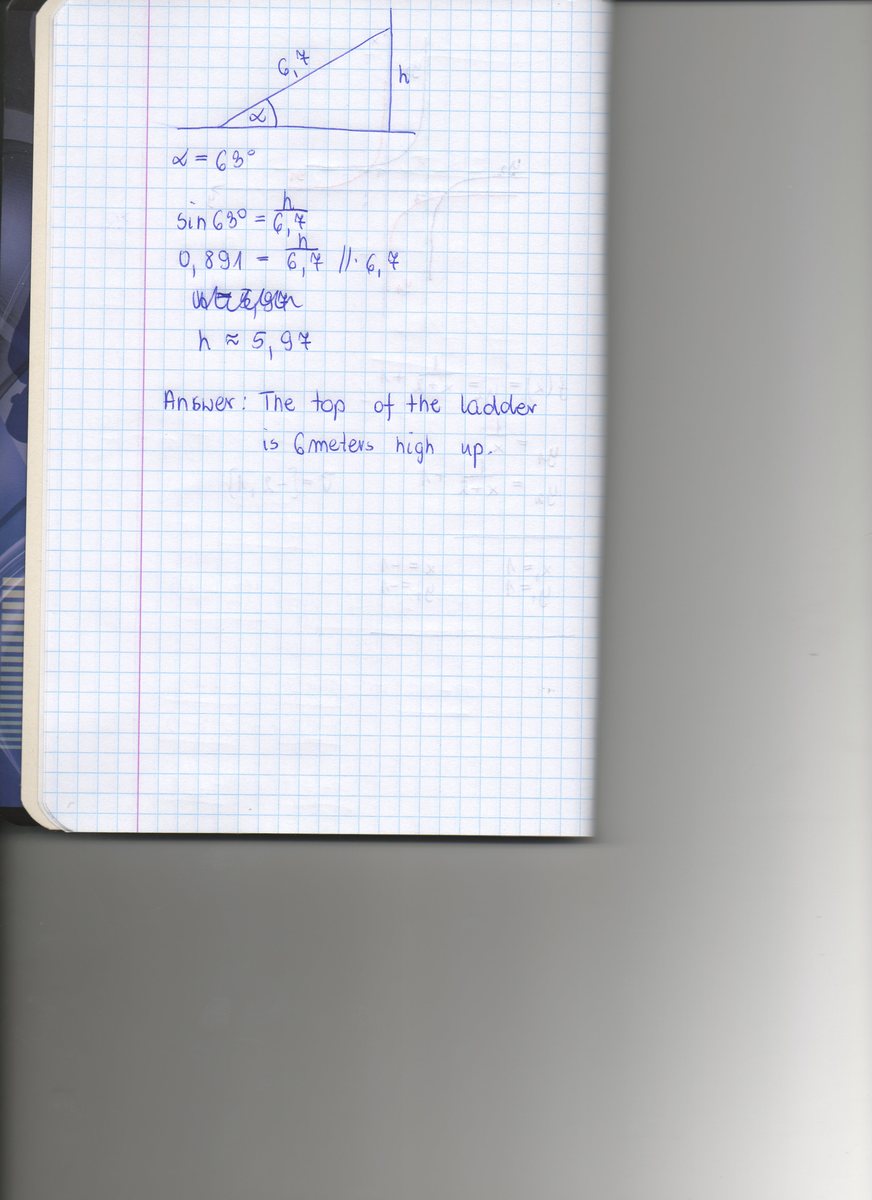 6,7
h
α
α = 63°
sin 63° = h/6,7
0,891 = h/6,7 //· 6,7
h ≈ 5,97
Answer: The top of the ladder
is 6 meters high up.